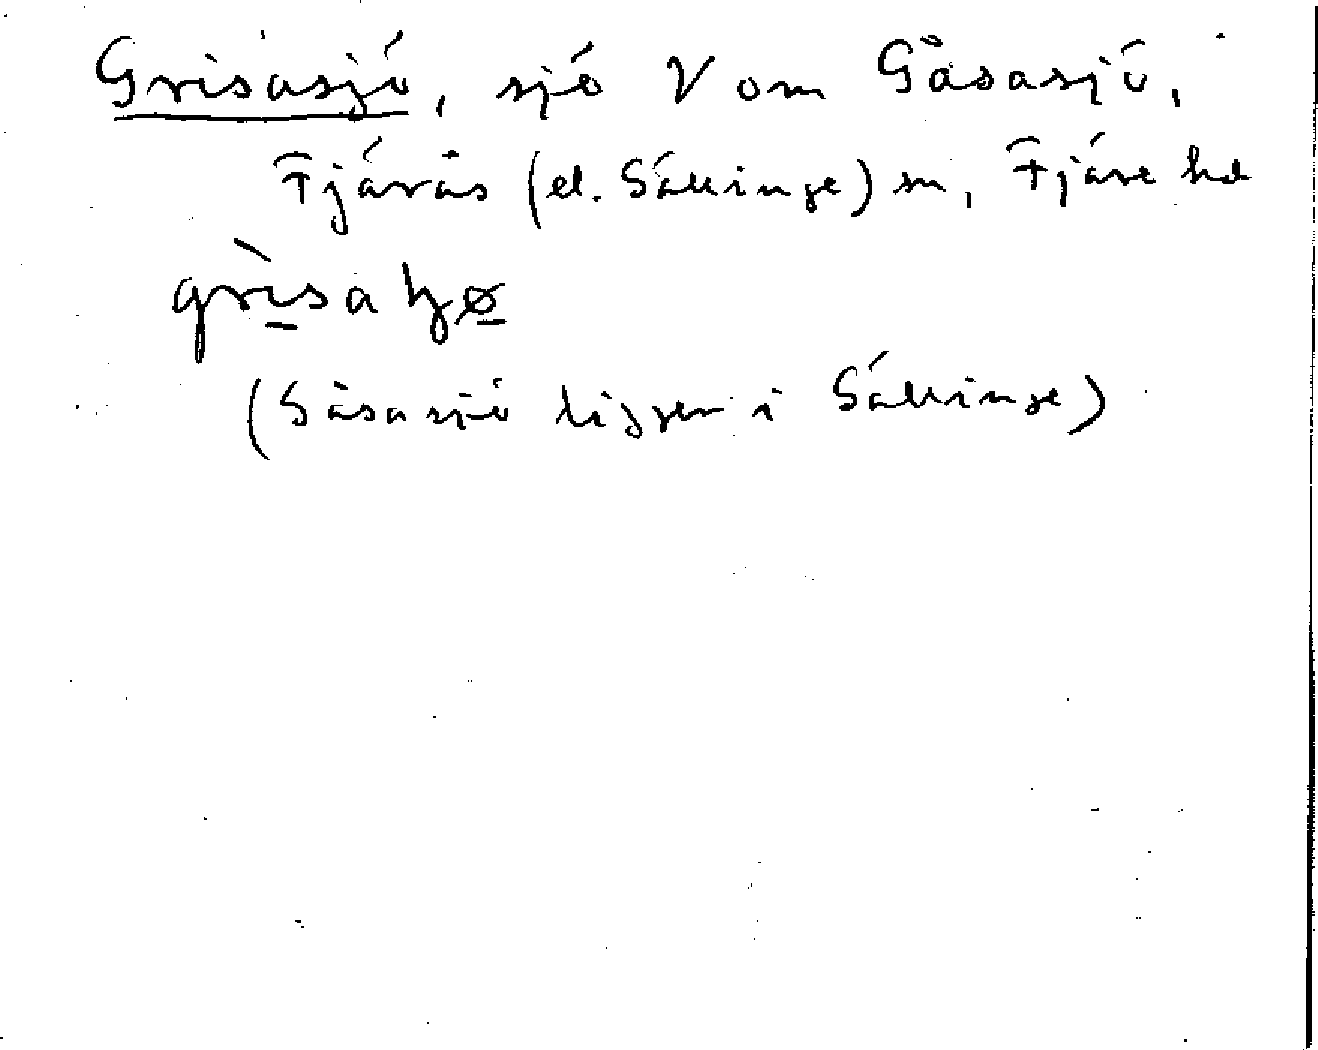 Grisasjö, sjö V om Gåsasjö,
Fjärås (el. Sällinge) sn, Fjäre hd
grisa
(Gåsasjö ligger i Sällinge)